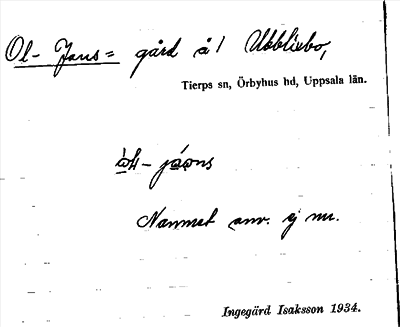 Ol-Jans= gård å/ Ubblixbo,
Tierps sn, Örbyhus hd, Uppsala län.
Namnet anv. ej nu.
Ingegärd Isaksson 1934.